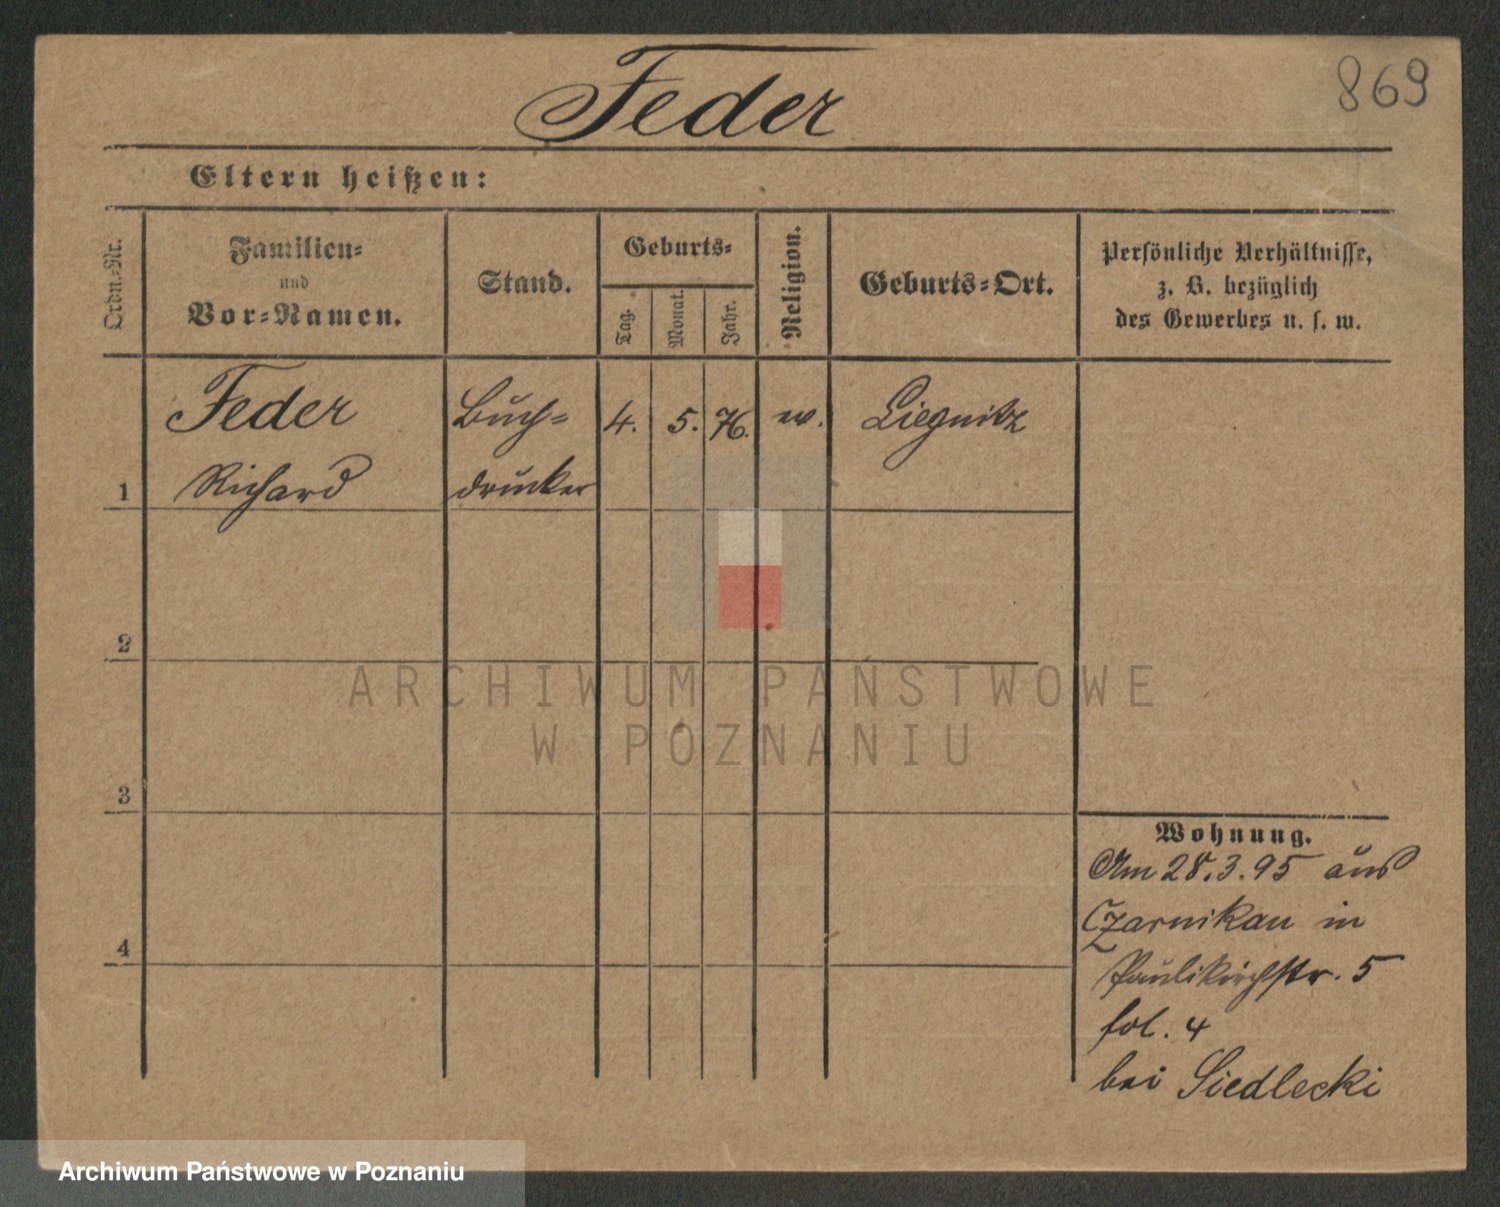 Feder
869
Eltern heißen:
Ordn.-Nr.
Familien-
und
Vor-Namen.
Stand.
Geburts-
Tag.
Monat.
Jahr.
Religion.
Geburts-Ort.
Persönliche Verhältnisse,
z. B. bezüglich
des Gewerbes u. s. w.
1
Feder
Richard
Buch-
drucker
4.
5.
76.
ev.
Liegnitz
2
3
4
Wohnung.
Am 28.3.95 aus
Czarnikau in
Paulikirchstr. 5
fol. 4
bei Siedlecki
ARCHIWUM PAŃSTWOWE
W POZNANIU
Archiwum Państwowe w Poznaniu